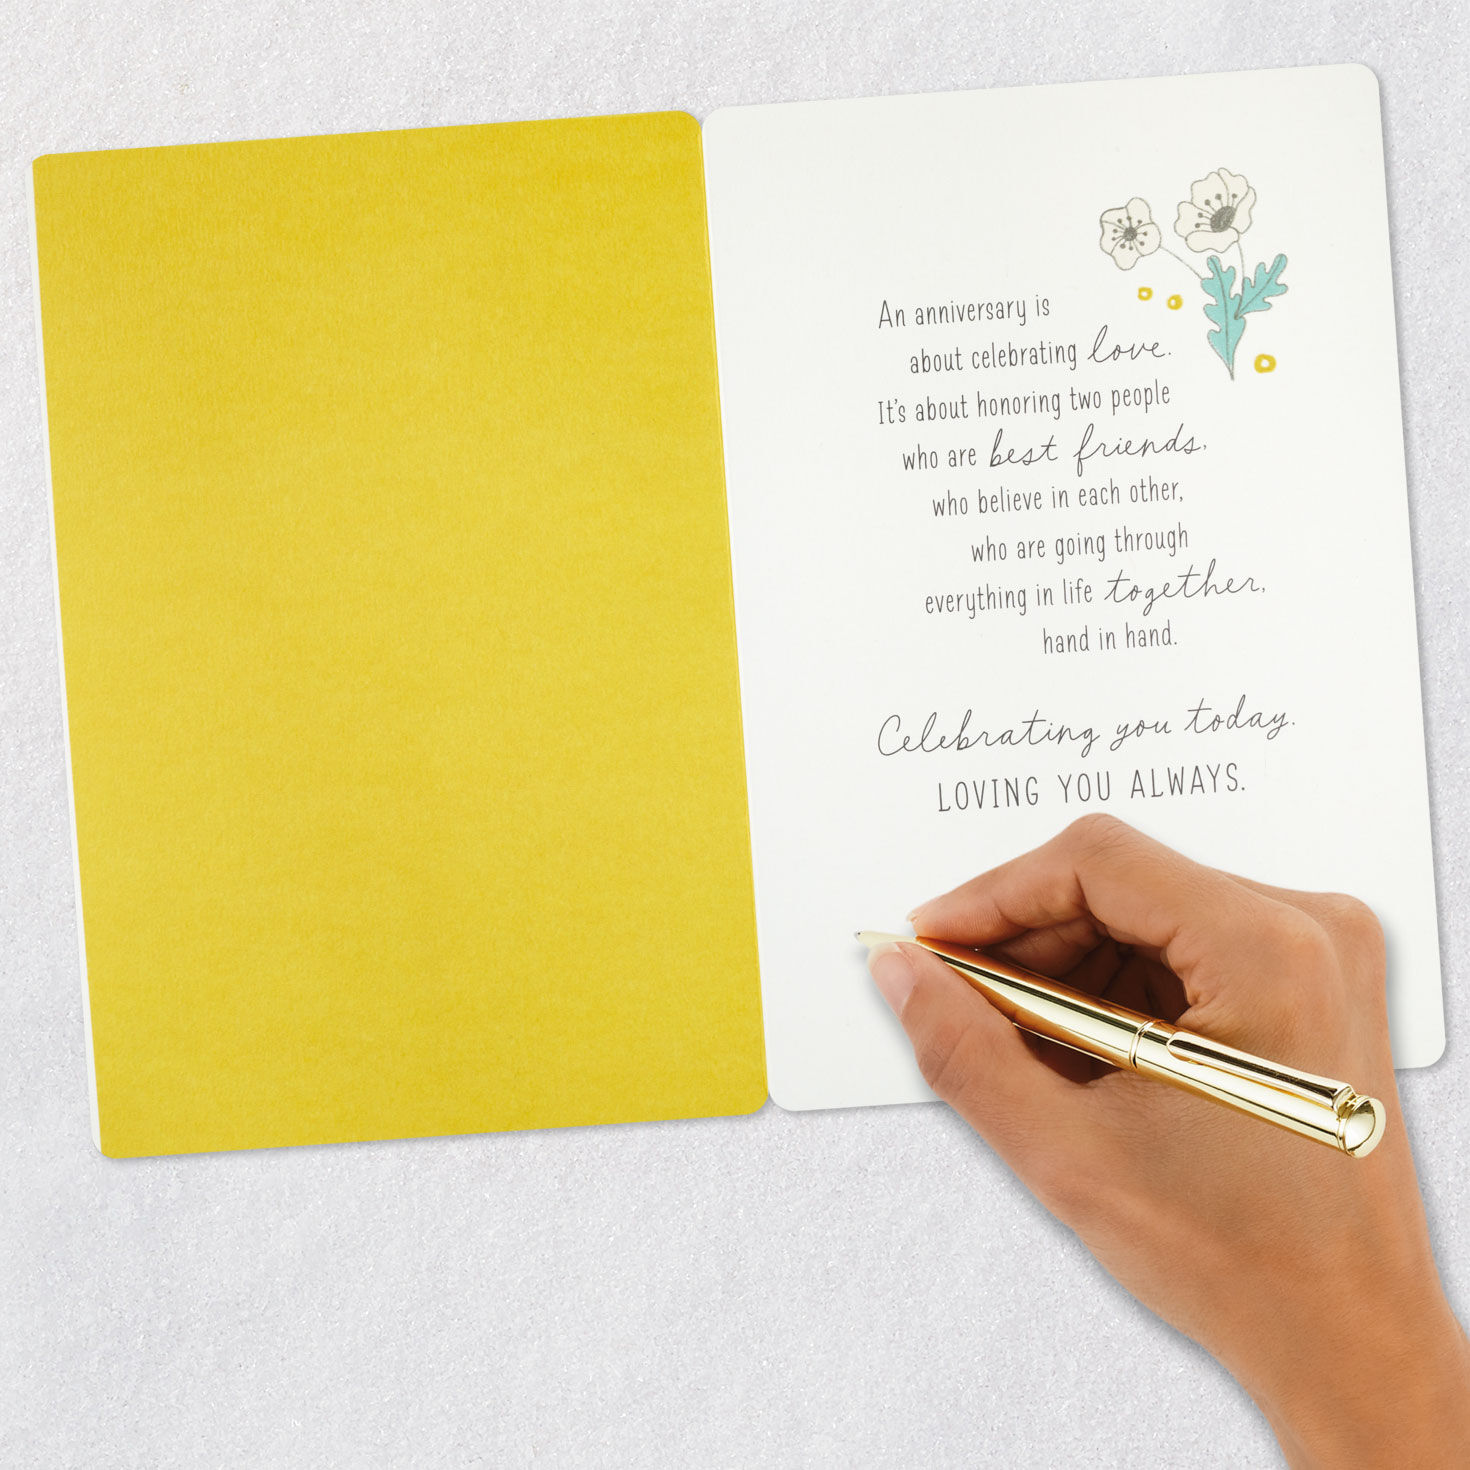 An anniversary is
about celebrating love.
It's about honoring two people
who are best friends,
who believe in each other,
who are going through
everything in life together,
hand in hand.
Celebrating you today.
LOVING YOU ALWAYS.